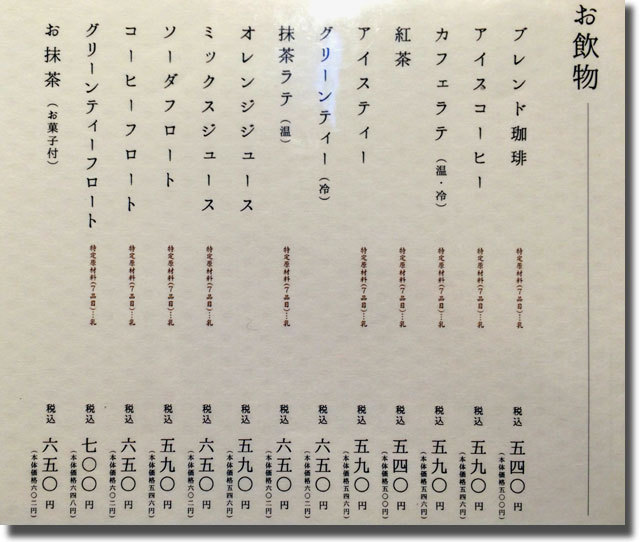 お飲物
ブレンド珈琲 特定原材料(7品目)…乳 税込 五四〇円
(本体価格五〇〇円)
アイスコーヒー 特定原材料(7品目)…乳 税込 五九〇円
(本体価格五四六円)
カフェラテ(温・冷) 特定原材料(7品目)…乳 税込 五九〇円
(本体価格五四六円)
紅茶 特定原材料(7品目)…乳 税込 五四〇円
(本体価格五〇〇円)
アイスティー 特定原材料(7品目)…乳 税込 五九〇円
(本体価格五四六円)
グリーンティー(冷) 税込 六五〇円
(本体価格六〇二円)
抹茶ラテ(温) 特定原材料(7品目)…乳 税込 六五〇円
(本体価格六〇二円)
オレンジジュース 税込 五九〇円
(本体価格五四六円)
ミックスジュース 特定原材料(7品目)…乳 税込 六五〇円
(本体価格六〇二円)
ソーダフロート 特定原材料(7品目)…乳 税込 五九〇円
(本体価格五四六円)
コーヒーフロート 特定原材料(7品目)…乳 税込 六五〇円
(本体価格六〇二円)
グリーンティーフロート 特定原材料(7品目)…乳 税込 七〇〇円
(本体価格六四八円)
お抹茶(お菓子付) 税込 六五〇円
(本体価格六〇二円)